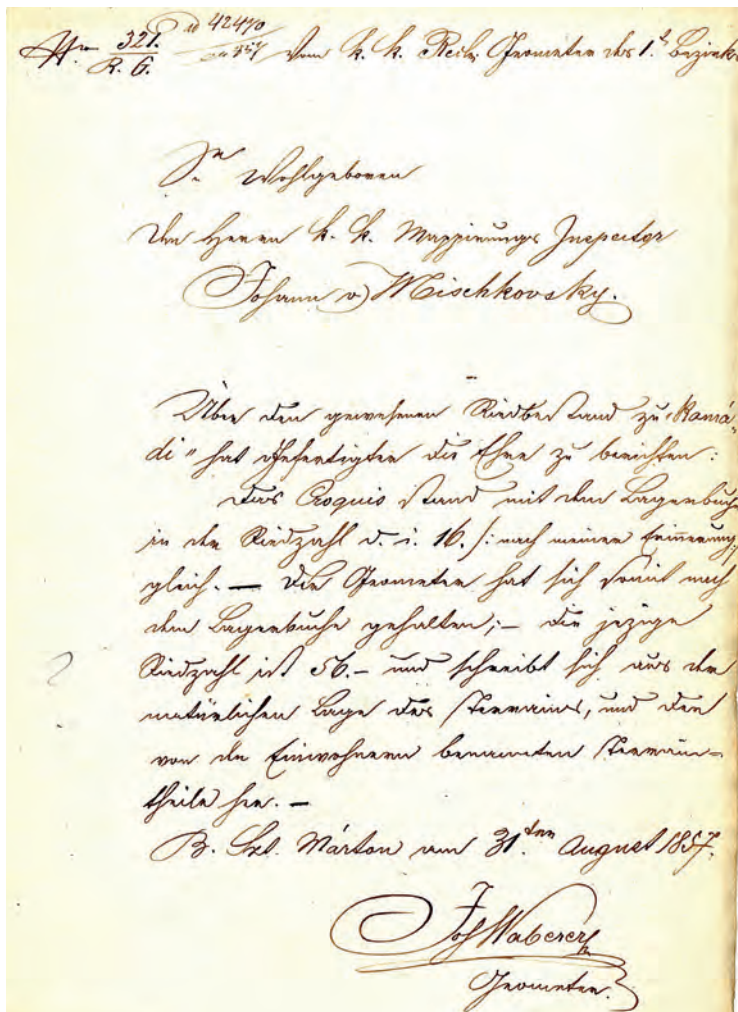 Nro 321. ad 42470
R. G. 857 Vom k. k. Reih. Geometer des 1. t Bezirks
Sr Wohlgeboren
Den Herrn k. k. Mappirungs Inspector
Johann v. Mischkovsky.
Über den gewesenen Riedbestand zu „Ramá-
di“ hat Gefertigter die Ehre zu berichten:
Das Croquis stand mit dem Lagerbuche
in der Riedzahl d. i. 16. /: nach meiner Erinnerung :/
gleich. — Der Geometer hat sich somit nach
dem Lagerbuche gehalten; — die jezige
Riedzahl ist 56. — und schreibt sich aus der
natürlichen Lage des Terrains, und den
von den Einwohnern benannten Terrain-
theile her. —
B. Szt. Márton am 31. ten August 1857.
Joh Waberer
Geometer.